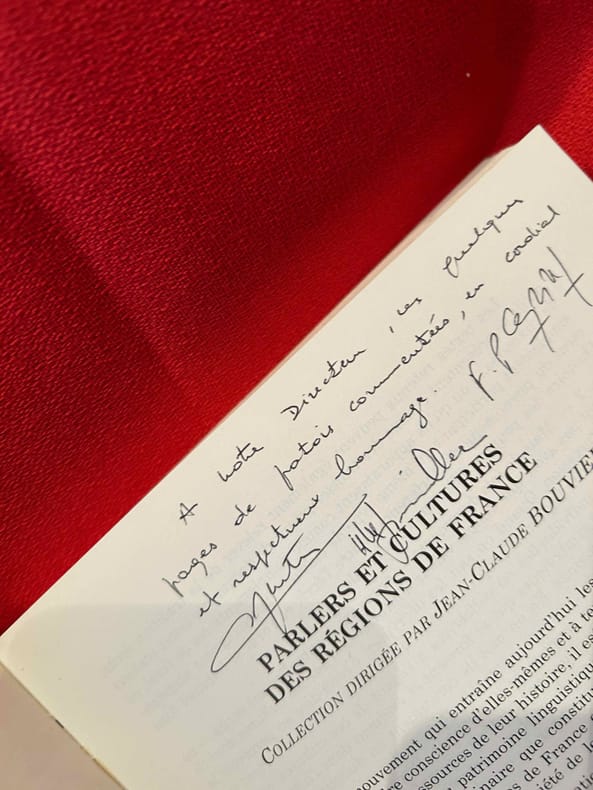 A notre Directeur, ces quelques
pages de patois commentées, en cordial
et respectueux hommage.
PARLERS ET CULTURES
DES RÉGIONS DE FRANCE
COLLECTION DIRIGÉE PAR JEAN-CLAUDE BOUVIE
ouvement qui entraîne aujourd'hui les
re conscience d'elles-mêmes et à te
essources de leur histoire, il es
patrimoine linguistiqu
inaire que constitu
es de France
iété de l